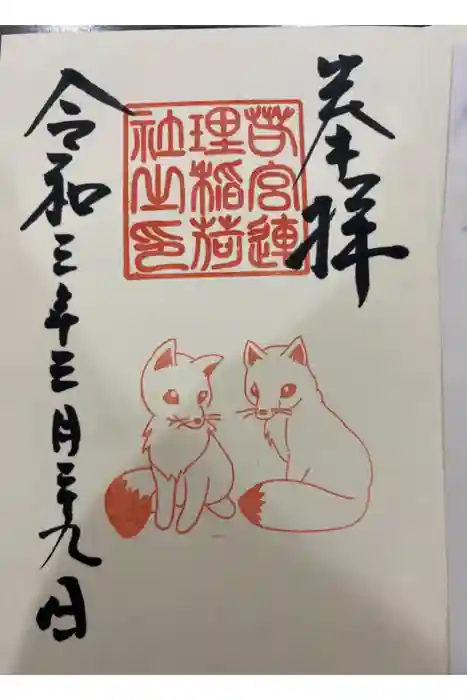 奉拝
若宮連
理稲荷
社之印
令和三年三月二十九日